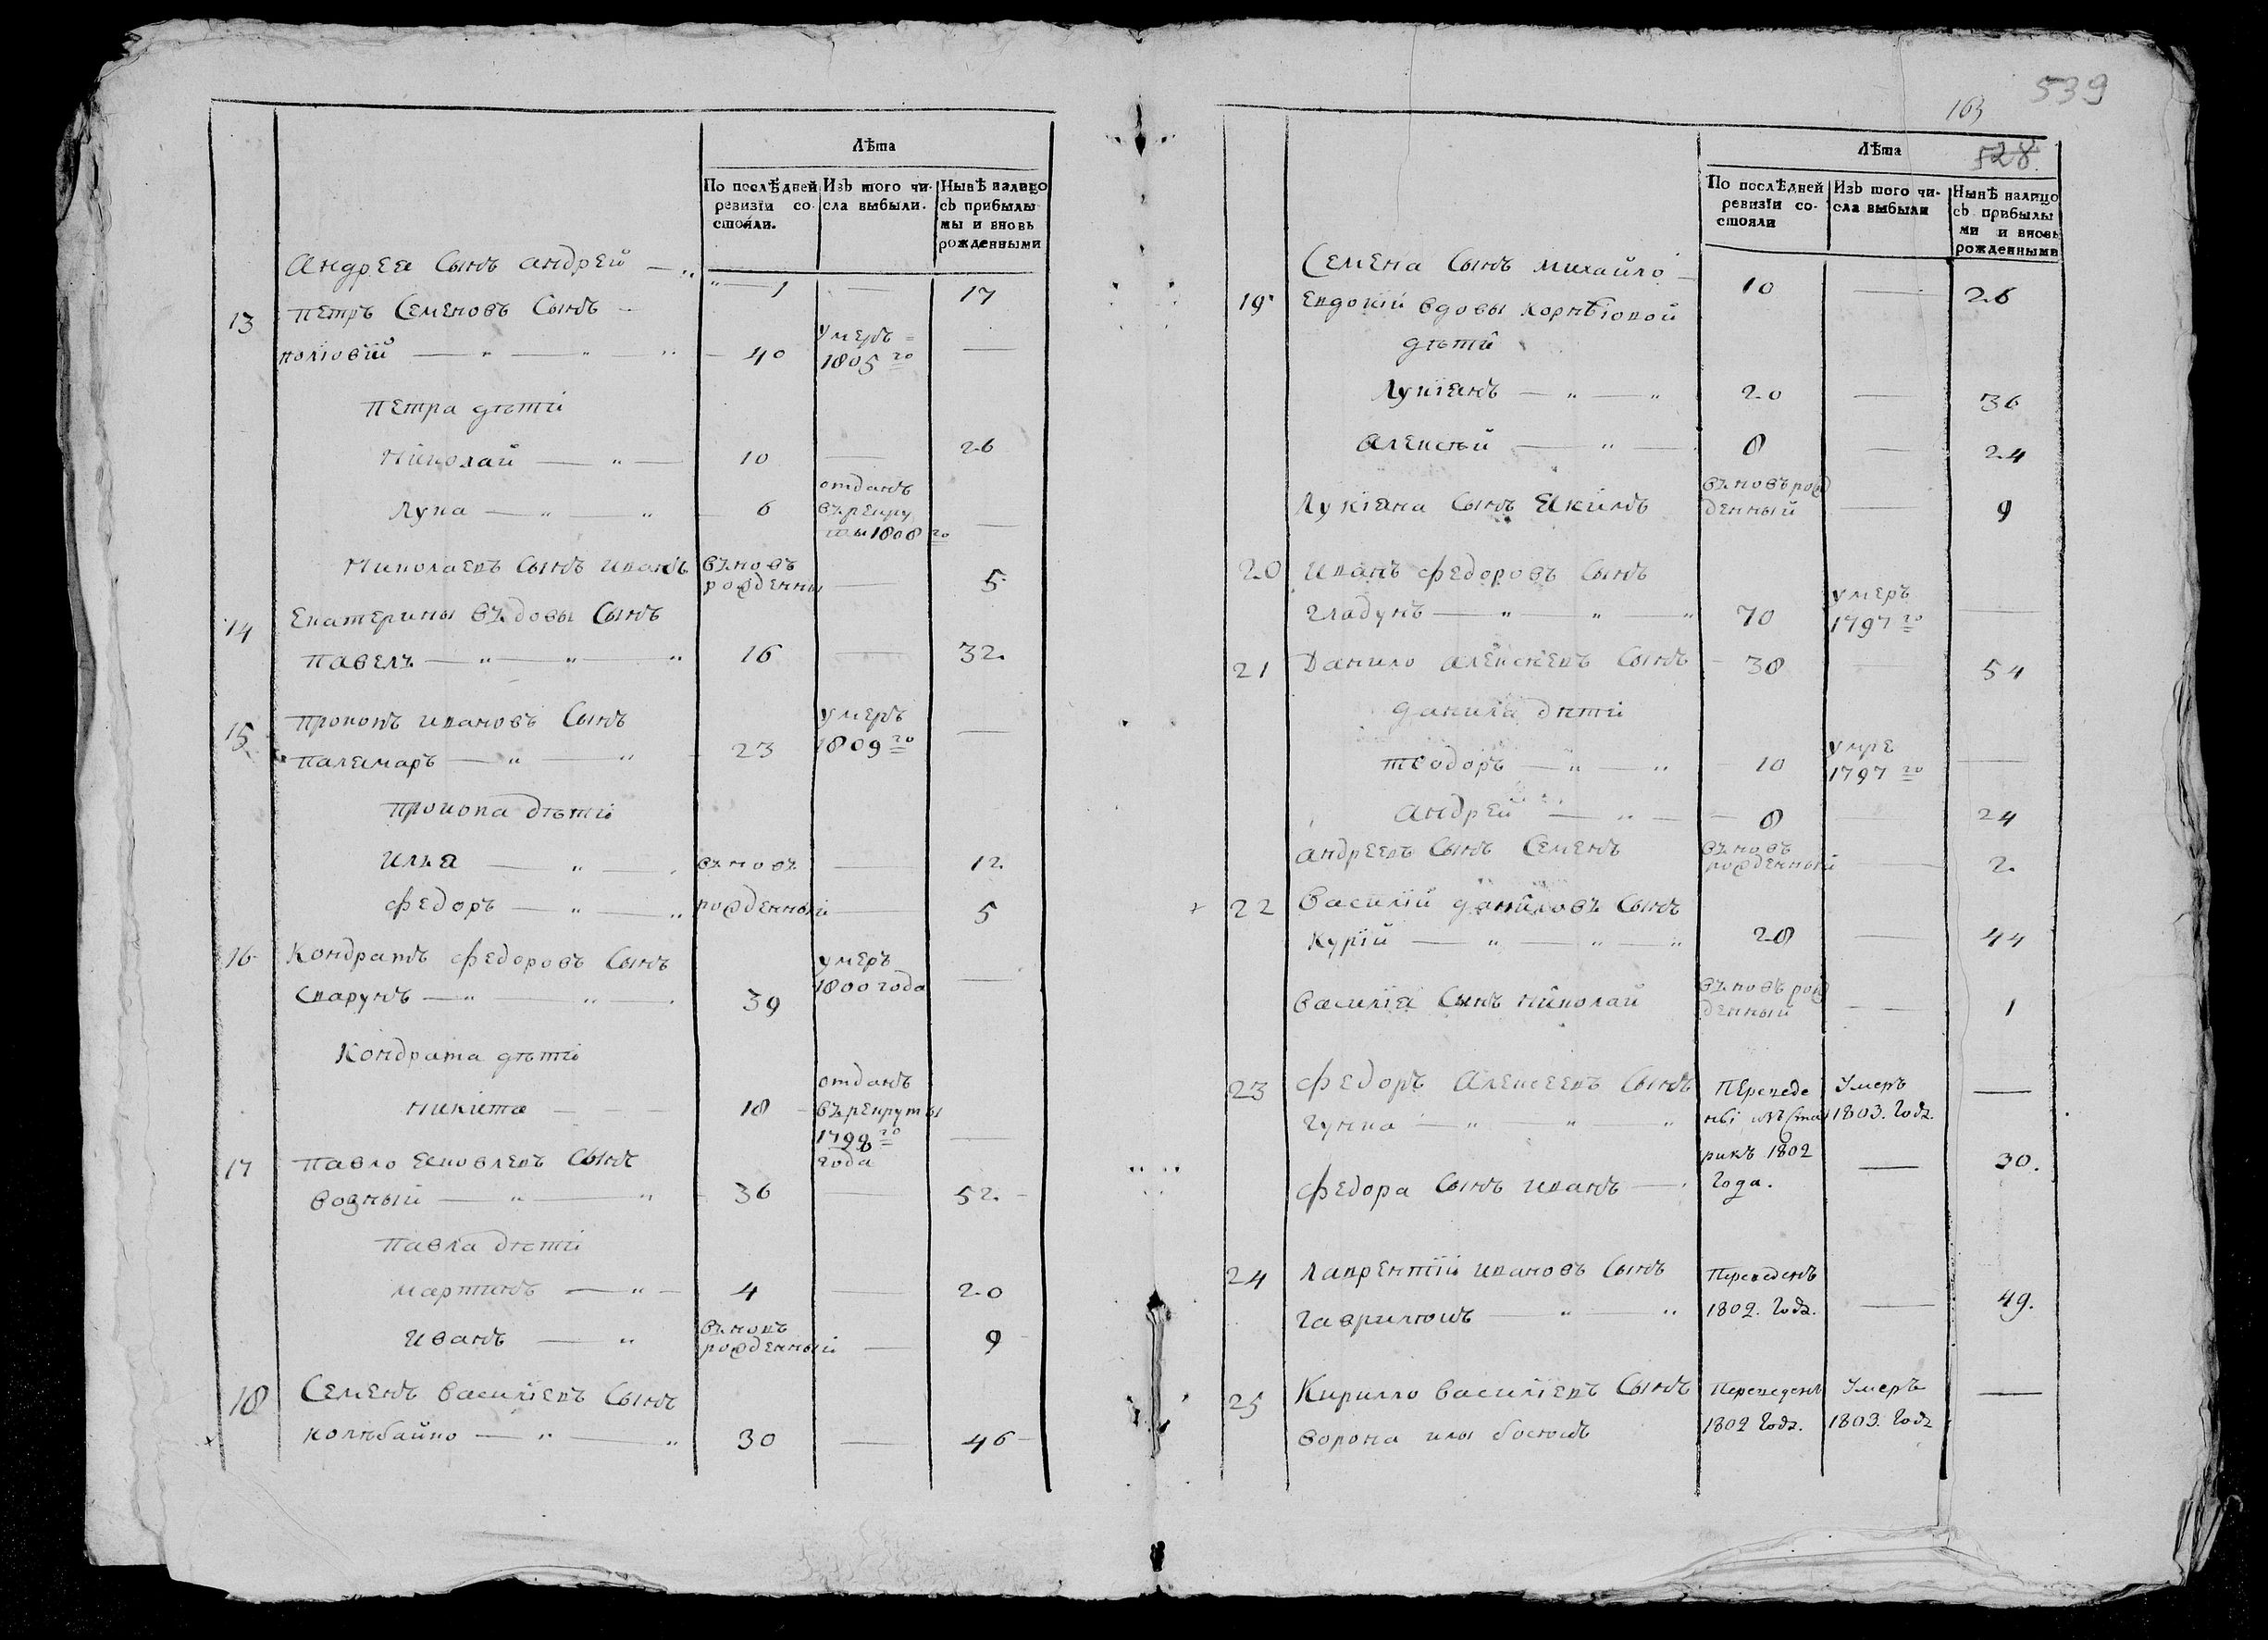 Лѣта
По послѣдней ревизїи состояли.
Изъ того числа выбыли.
Нынѣ налицо съ прибылы мы и вновь рожденными
Андрея Сынъ андрей 1 — 17
13 петръ Семеновъ Сынъ
40 умеръ 1805го —
Петра дѣти
Николай 10 — 26
Лука 6 отданъ въ рекру ты 1808го —
Николаевъ Сынъ иванъ въновь рожденны — 5
14 Екатерины въдовы Сынъ
павелъ 16 — 32.
15 прокопъ ивановъ Сынъ
паламаръ 23 умеръ 1809го —
прокопа дѣти
илья въновь — 12
федоръ рожденный 5
16 Кондратъ федоровъ Сынъ
Скарунъ 39 умеръ 1800 года —
Кондрата дѣти
никита 18 отданъ въ рекруты 1799го года —
17 павло Яковлевъ Сынъ
возный 36 — 52.
павла дѣти
мартинъ 4 — 20
иванъ въновь рожденный — 9
18 Семенъ василїевъ Сынъ
колѣбайко 30 — 46
539
163
528.
Лѣта
По послѣдней ревизїи состояли
Изъ того числа выбыли
Нынѣ налицо съ прибылы ми и вновь рожденными
Семена Сынъ михайло 10 — 26
19 Евдокїи вдовы корнѣїовой
дѣти
Лукїянъ 20 — 36
алексѣй 8 — 24
Лукїяна Сынъ Якимъ въновь рож денный — 9
20 иванъ федоровъ Сынъ
гладунъ 70 умеръ 1797го —
21 Данило алексѣевъ Сынъ 38 — 54
данила дѣти
теодоръ 10 умре 1797го —
андрей 8 — 24
андреевъ Сынъ Семенъ въновь рожденный — 2.
22 василїй даниловъ Сынъ
Курїй 28 — 44
василїя Сынъ николай въновь рож денный — 1
23 федоръ Алексеевъ Сынъ
гунка Переведе нъ 1802 Года. Умеръ 1803. Годъ. —
федора Сынъ иванъ — 30.
24 лаврентїй ивановъ Сынъ
гаврилюшъ Переведенъ 1802. Годъ. — 49.
25 Кирилло василїевъ Сынъ
ворона илы Переведенъ 1802 Годъ. Умеръ 1803. Годъ —